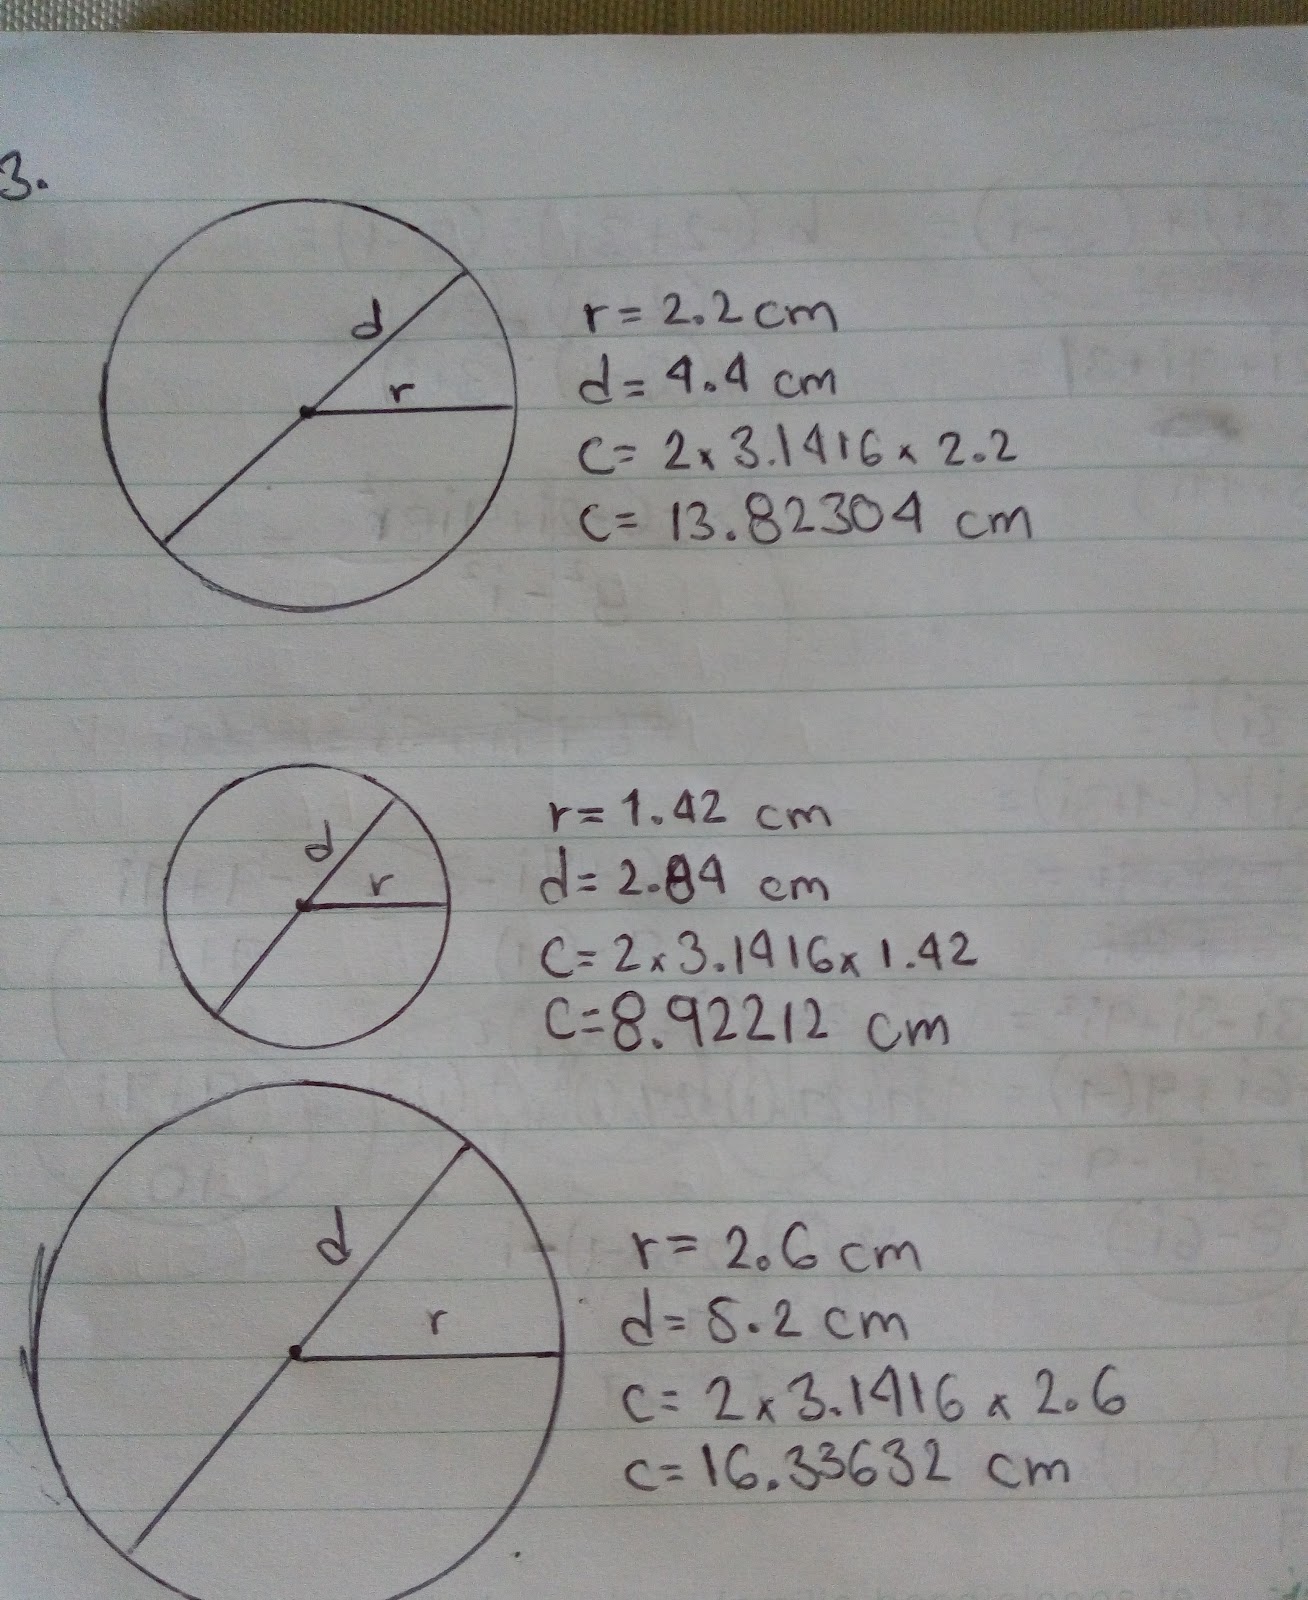 3.
d
r
r = 2.2 cm
d = 4.4 cm
C = 2 x 3.1416 x 2.2
C = 13.82304 cm
d
r
r = 1.42 cm
d = 2.84 cm
C = 2 x 3.1416 x 1.42
C = 8.92212 cm
d
r
r = 2.6 cm
d = 5.2 cm
C = 2 x 3.1416 x 2.6
C = 16.33632 cm